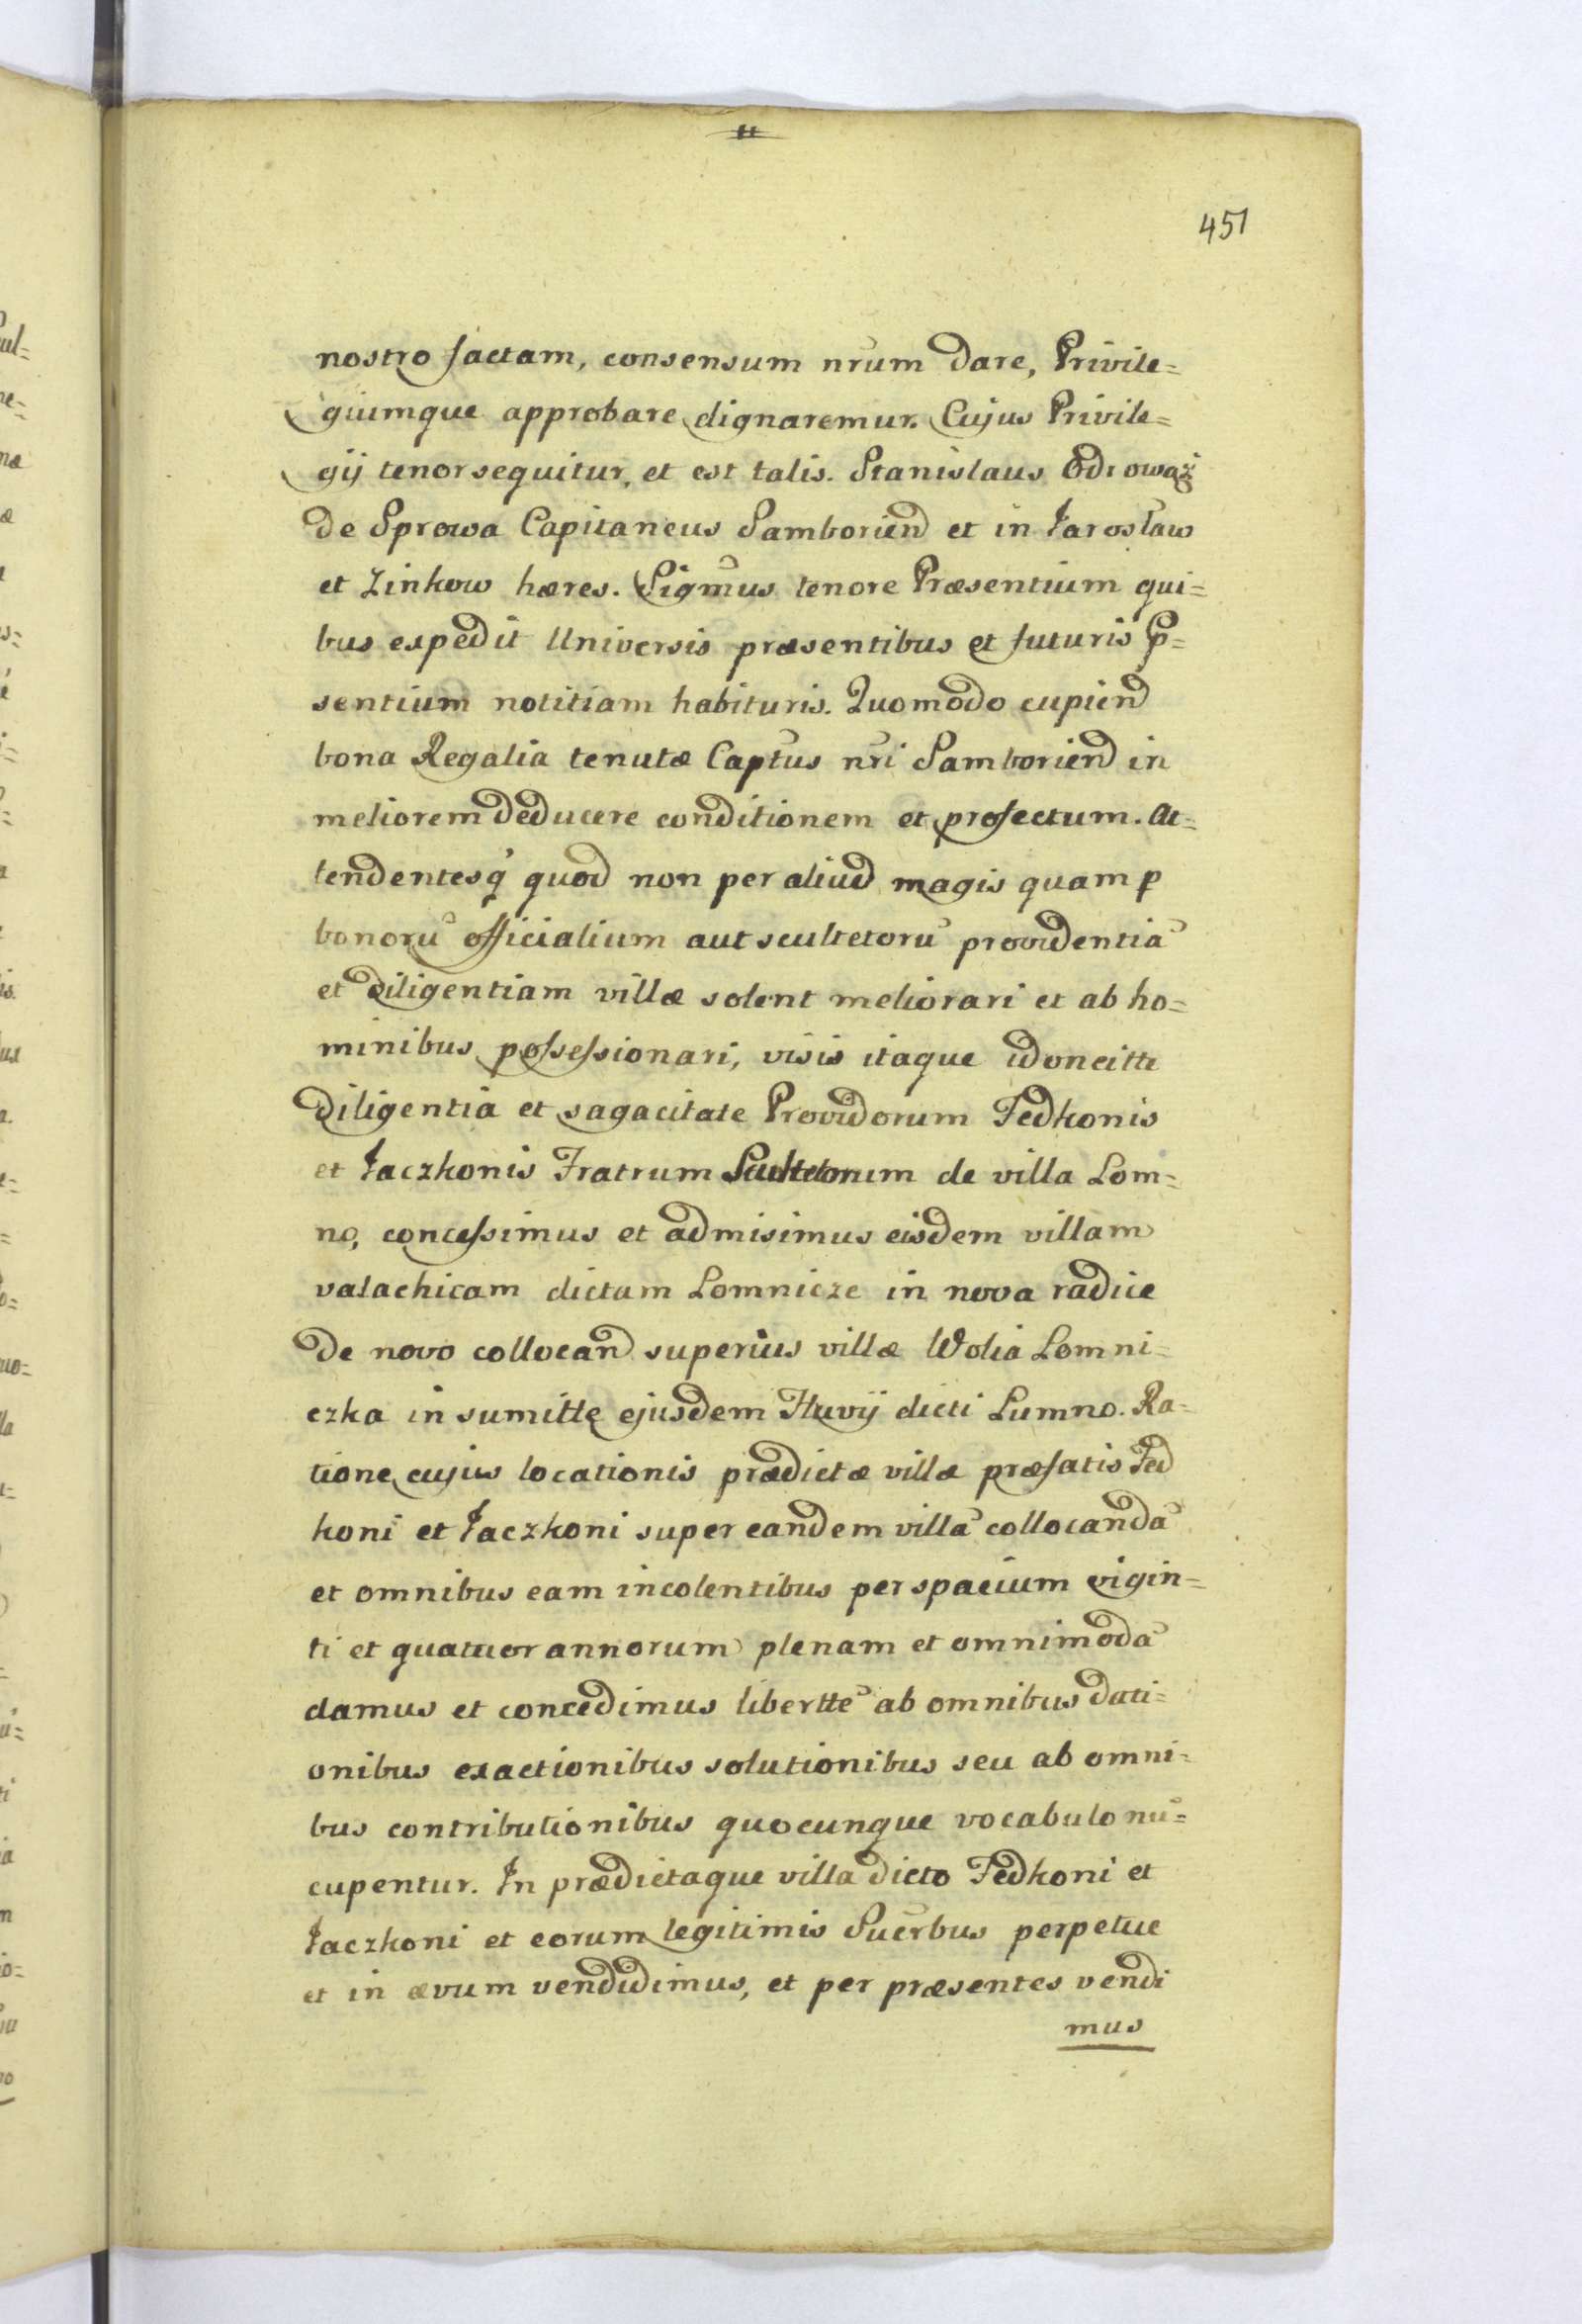 451
nostro factam, consensum nrum dare, Privile=
giumque approbare dignaremur. Cujus Privile=
gij tenor sequitur, et est talis. Stanislaus Odrowąż
de Sprowa Capitaneus Samborien̄d et in Jarosław
et Zinkow hæres. Sigm̃us tenore Præsentium qui=
bus expedit Universis præsentibus et futuris p̄=
sentium notitiam habituris. Quomodo cupien̄d
bona Regalia tenutæ Cap̃tus nr̃i Samborien̄d in
meliorem deducere conditionem et profectum. At=
tendentesq̓ quod non per aliud magis quam ꝑ
bonorũ officialium aut scultetorũ providentiã
et diligentiam villæ solent meliorari et ab ho=
minibus possessionari, visis itaque idoneitte
diligentia et sagacitate Providorum Fedkonis
et Jaczkonis Fratrum Scultetorum de villa Lom=
no, concessimus et admisimus eisdem villam
valachicam dictam Lomnicze in nova radice
de novo collocan̄d superius villæ Wolia Lomni=
czka in sumitte ejusdem Fluvij dicti Lumno. Ra=
tione cujus locationis prædictæ villæ præfatis Fed
koni et Jaczkoni super eandem villã collocandã
et omnibus eam incolentibus per spacium vigin=
ti et quatuor annorum plenam et omnimodã
damus et concedimus libertt̃e ab omnibus dati=
onibus exactionibus solutionibus seu ab omni=
bus contributionibus quocunque vocabulo nũ=
cupentur. In prædictaque villa dicto Fedkoni et
Jaczkoni et eorum legitimis Suc̃rbus perpetue
et in ævum vendidimus, et per præsentes vendi
mus